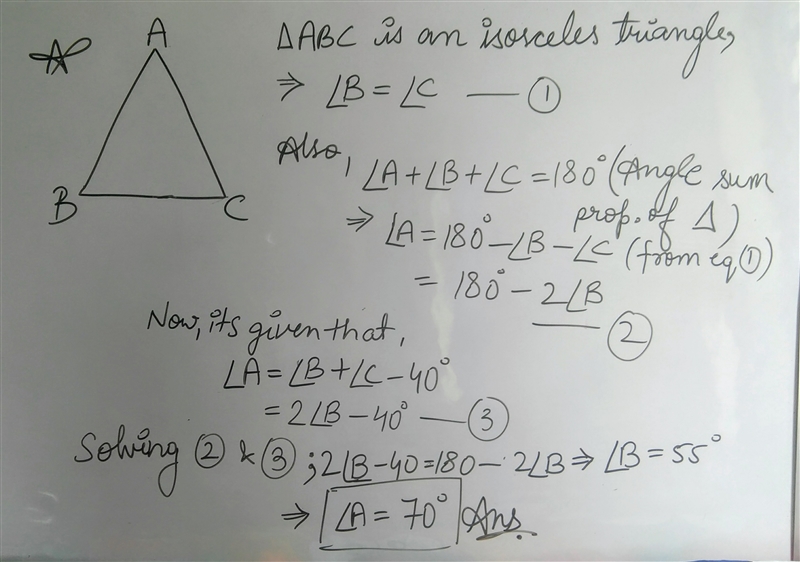 A
B
C
ΔABC is an isosceles triangle,
⇒ ∠B = ∠C — ①
Also, ∠A + ∠B + ∠C = 180° (Angle sum
prop. of Δ)
⇒ ∠A = 180° - ∠B - ∠C (from eq ①)
= 180° - 2∠B
— ②
Now, its given that,
∠A = ∠B + ∠C - 40°
= 2∠B - 40° — ③
Solving ② & ③ ; 2∠B - 40 = 180 - 2∠B ⇒ ∠B = 55°
⇒ ∠A = 70° Ans.